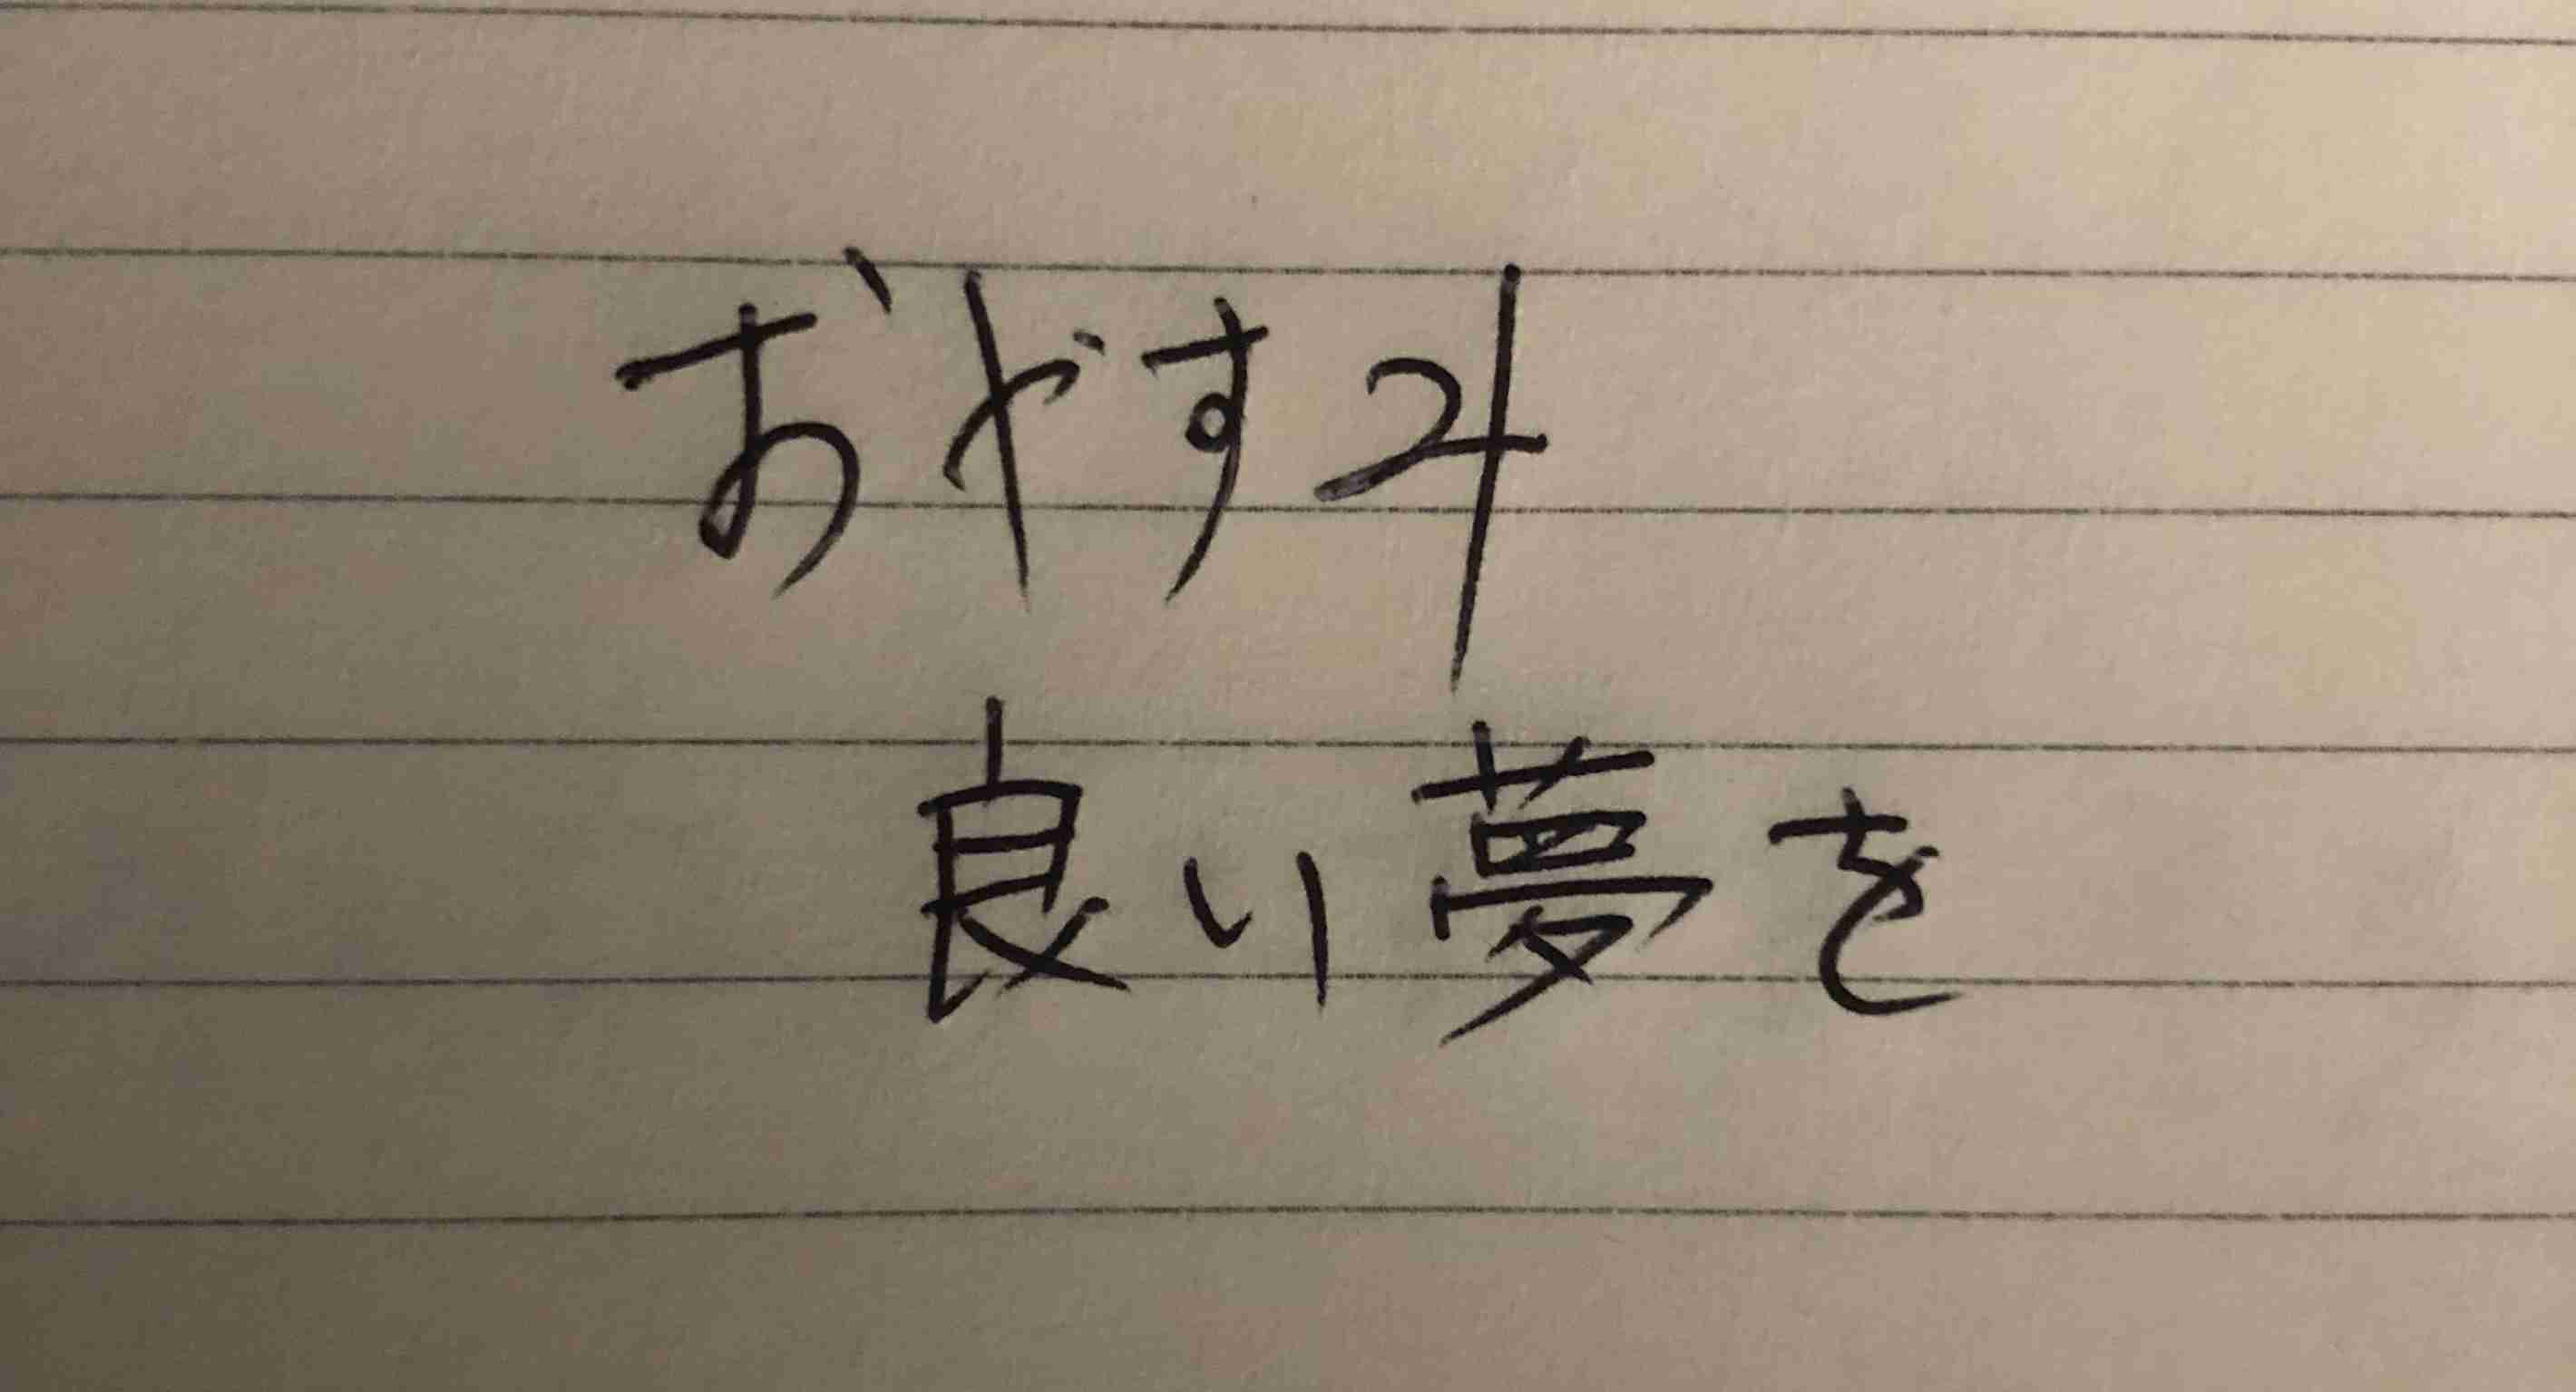 おやすみ
良い夢を